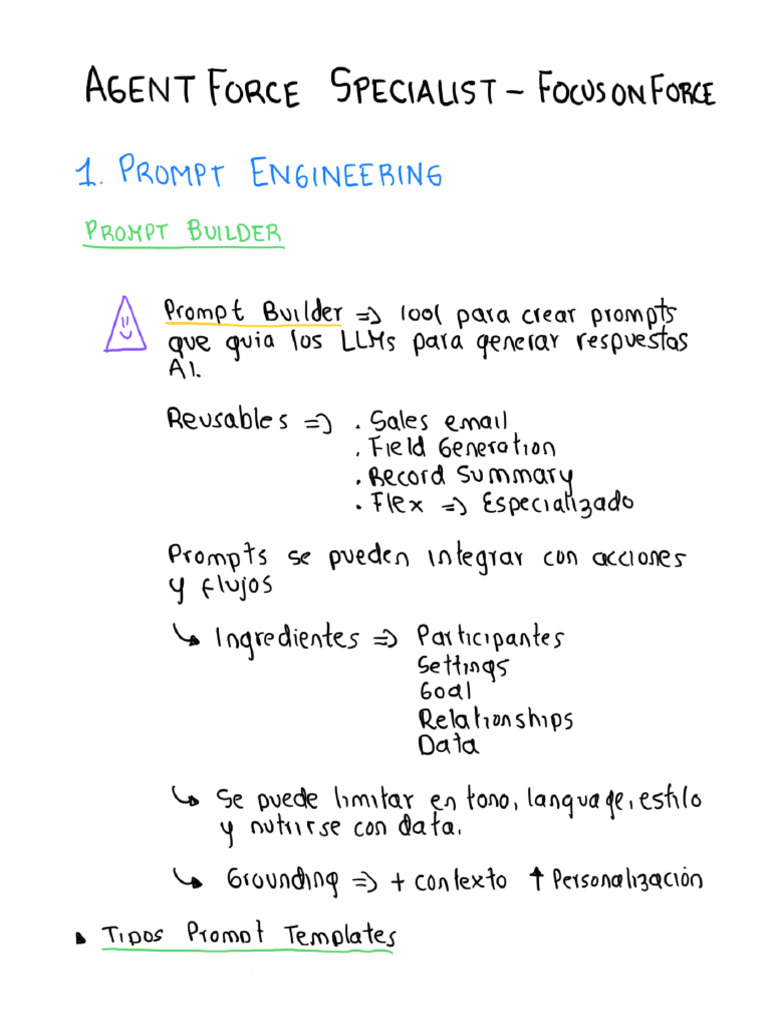 AGENTFORCE SPECIALIST - FOCUS ON FORCE
1. PROMPT ENGINEERING
PROMPT BUILDER
Prompt Builder => tool para crear prompts
que guia los LLMs para generar respuestas
AI.
Reusables => . Sales email
. Field Generation
. Record Summary
. Flex => Especializado
Prompts se pueden integrar con acciones
y flujos
↳ Ingredientes => Participantes
Settings
Goal
Relationships
Data
↳ Se puede limitar en tono, language, estilo
y nutrirse con data.
↳ Grounding => + contexto ↑ Personalización
• Tipos Prompt Templates